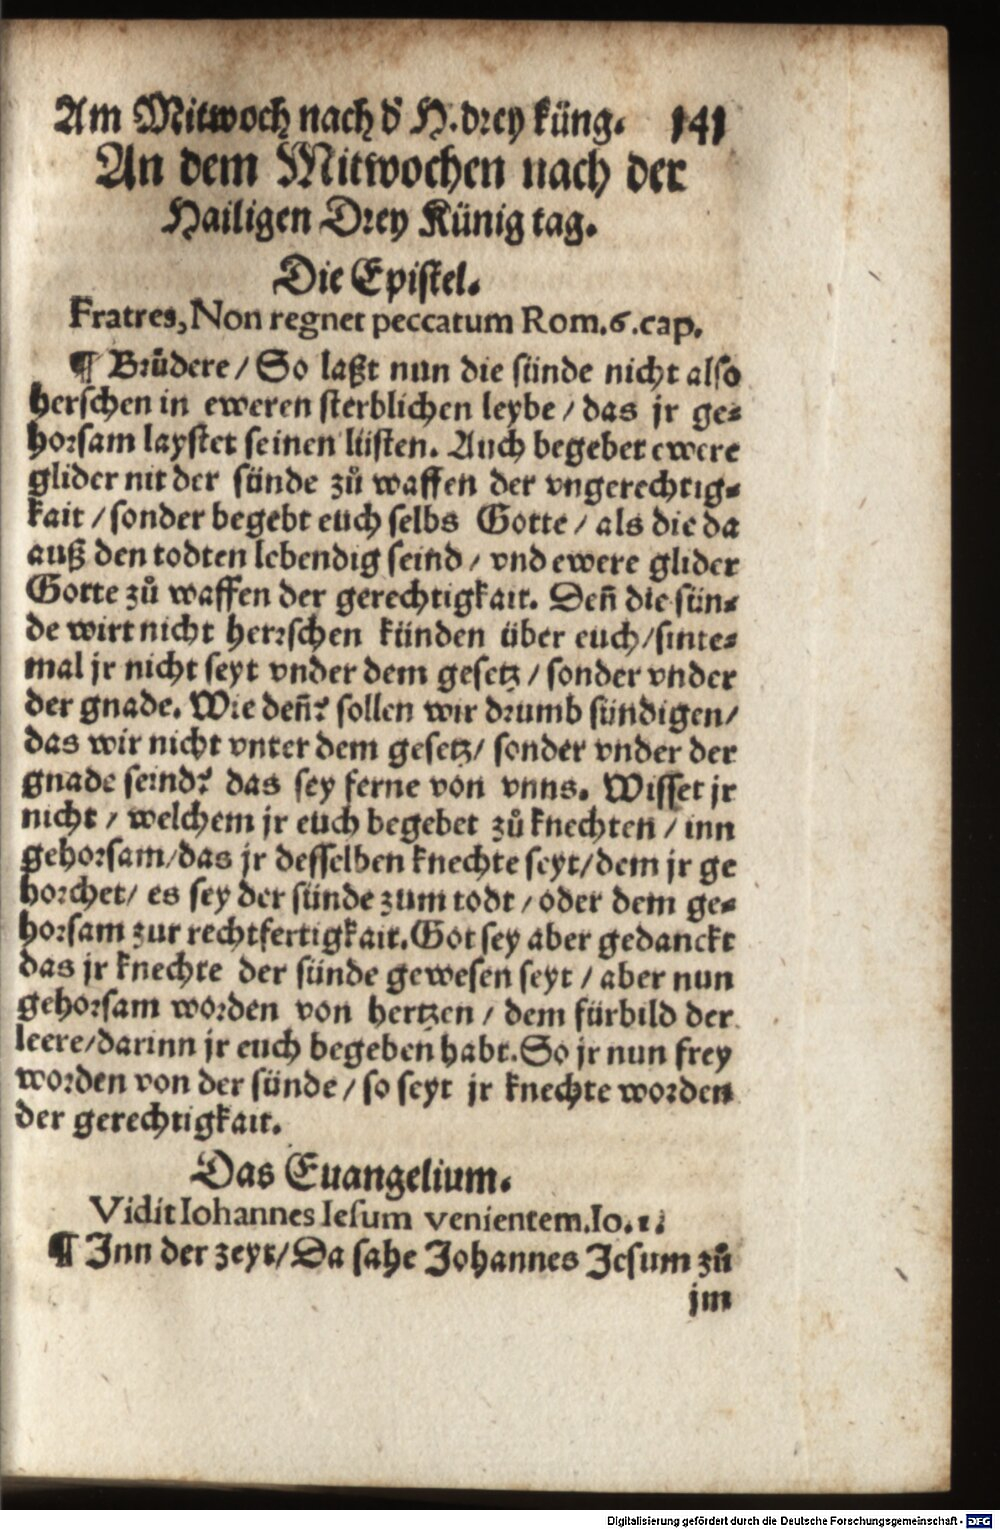 Am Mitwoch nach d̕ H. drey küng. 141
An dem Mitwochen nach der
Hailigen Drey Künig tag.
Die Epistel.
Fratres, Non regnet peccatum Rom. 6. cap.
¶ Brůdere / So laßt nun die sünde nicht also
herschen in eweren sterblichen leybe / das jr ge⸗
horsam laystet seinen lüsten. Auch begebet ewere
glider nit der sünde zů waffen der vngerechtig⸗
kait / sonder begebt euch selbs Gotte / als die da
auß den todten lebendig seind / vnd ewere glider
Gotte zů waffen der gerechtigkait. Deñ die sün⸗
de wirt nicht herrschen künden über euch / sinte⸗
mal jr nicht seyt vnder dem gesetz / sonder vnder
der gnade. Wie deñ? sollen wir drumb sündigen /
das wir nicht vnter dem gesetz / sonder vnder der
gnade seind? das sey ferne von vnns. Wisset jr
nicht / welchem jr euch begebet zů knechten / inn
gehorsam / das jr desselben knechte seyt / dem jr ge
horchet / es sey der sünde zum todt / oder dem ge⸗
horsam zur rechtfertigkait. Got sey aber gedanckt
das jr knechte der sünde gewesen seyt / aber nun
gehorsam worden von hertzen / dem fürbild der
leere / darinn jr euch begeben habt. So jr nun frey
worden von der sünde / so seyt jr knechte worden
der gerechtigkait.
Das Euangelium.
Vidit Iohannes Iesum venientem. Io. 1.
¶ Inn der zeyt / Da sahe Johannes Jesum zů
jm
Digitalisierung gefördert durch die Deutsche Forschungsgemeinschaft - DFG